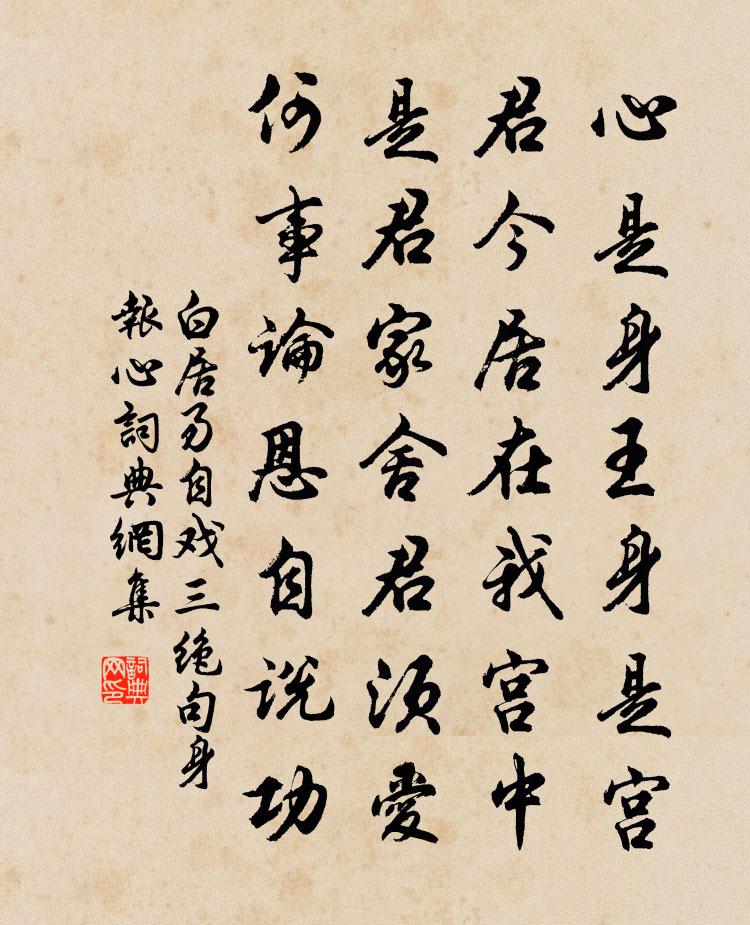 心是身王身是宫
君今居在我宫中
是君家舍君须愛
何事論恩自说功
白居易自戏三绝句身
報心詞典網集
詞典网印